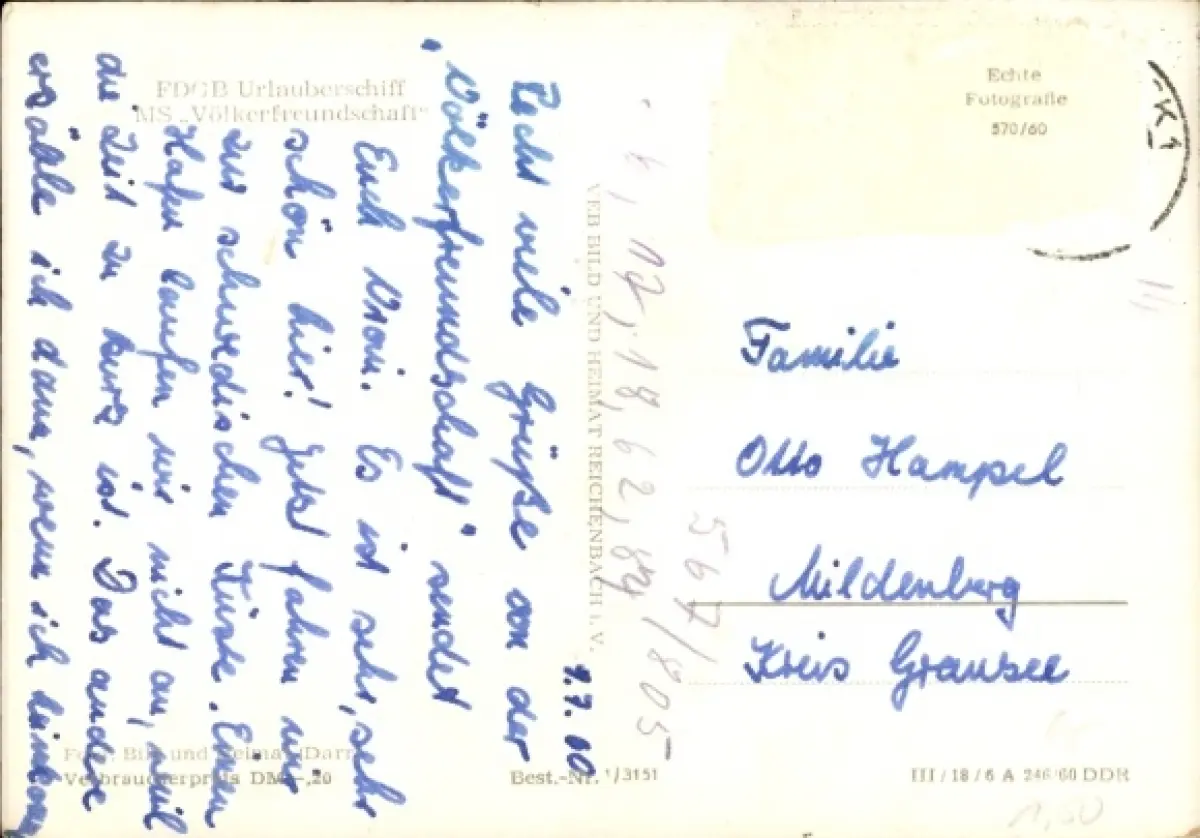 FDGB Urlauberschiff
MS „Völkerfreundschaft"
Echte
Fotografie
570/60
K 1
7.60
Recht viele Grüße von der
„Völkerfreundschaft" sendet
Euch It is sehr, sehr
schön hier! Jetzt fahren wir
zur schwedischen Küste. Einen
Hafen laufen wir nicht an, weil
die Zeit zu kurz ist. Das andre
erzähle ich dann, wenn ich
VEB BILD UND HEIMAT REICHENBACH i. V.
4, 17, 18, 62, 84
567/805
Familie
Otto Hampel
Mildenberg
Kreis Gransee
Foto: Bild und Heimat (Darr)
Verbraucherpreis DM –,20
Best.-Nr. 1/3151
III/18/6 A 246/60 DDR
1,50